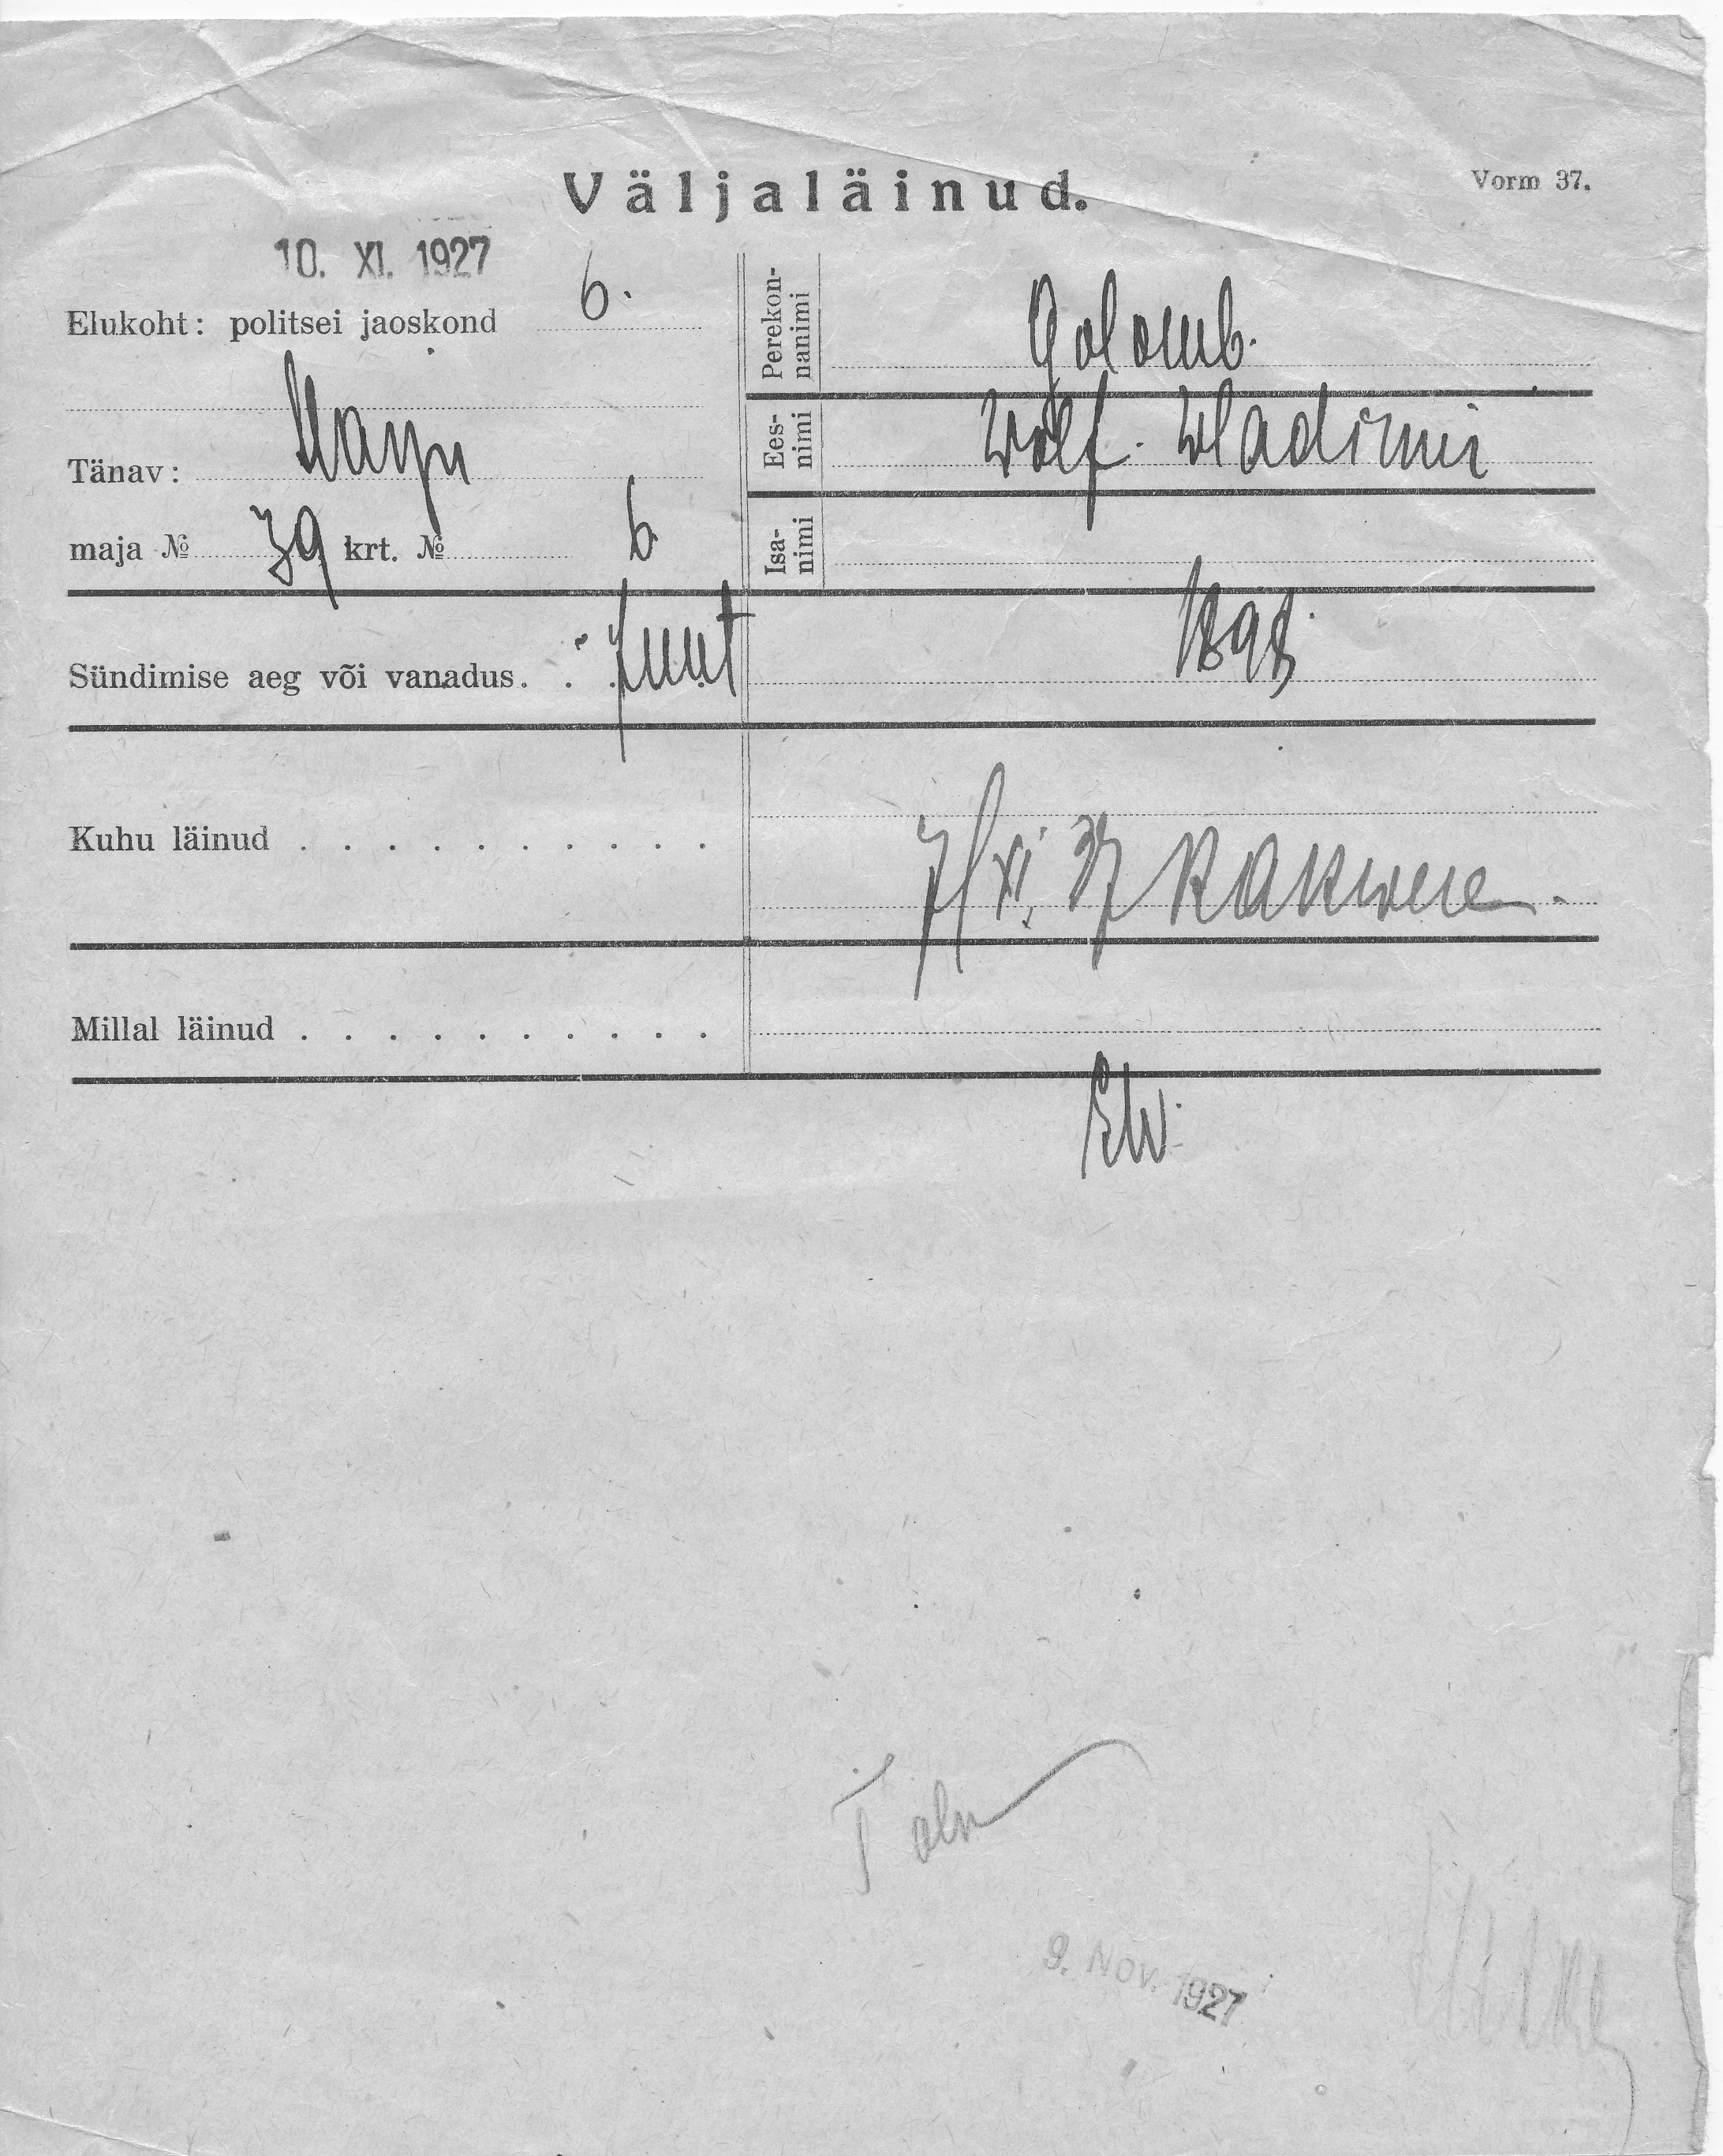 Väljaläinud.
Vorm 37.
10. XI. 1927
Elukoht: politsei jaoskond 6.
Tänav: Harju
maja № 39 krt. № 6
Perekonnanimi Golomb.
Eesnimi Wolf. Wladimir
Isanimi
Sündimise aeg või vanadus. . . 1898.
Kuhu läinud . . . . . . . . . .
7/XI. 27 Rakwere.
Millal läinud . . . . . . . . . .
9. NOV. 1927